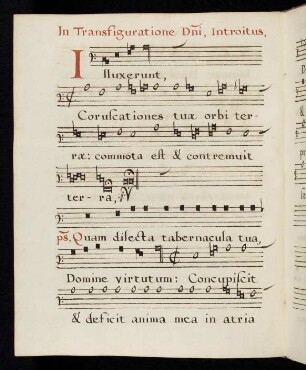 In Transfiguratione Dñi, Introitus,
Illuxerunt,
Coruſcationes tuæ orbi ter-
ræ: commota eſt & contremuit
ter- ra,
pſ. Quam dilecta tabernacula tua,
Domine virtutum: Concupiſcit
& deficit anima mea in atria